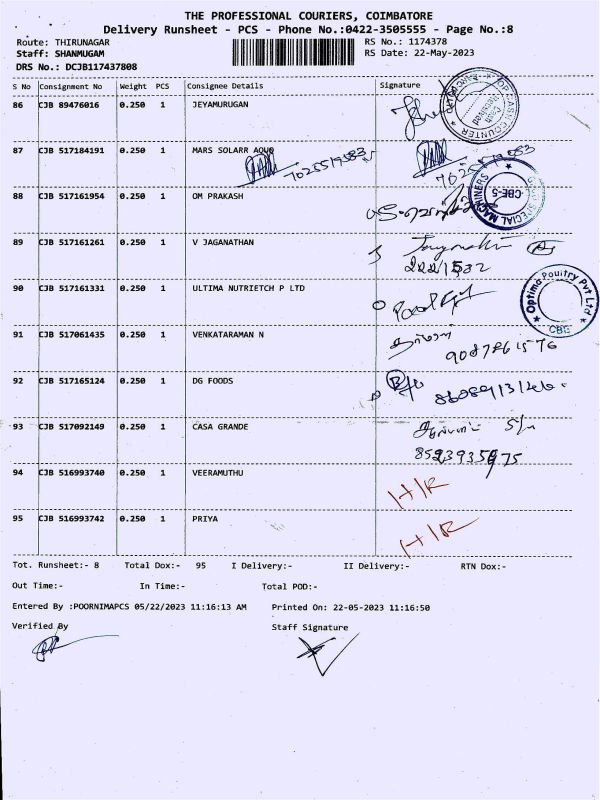 THE PROFESSIONAL COURIERS, COIMBATORE
Delivery Runsheet - PCS - Phone No.:0422-3505555 - Page No.:8
Route: THIRUNAGAR
RS No.: 1174378
Staff: SHANMUGAM
RS Date: 22-May-2023
DRS No.: DCJB117437808
S No Consignment No Weight PCS Consignee Details Signature
86 CJB 89476016 0.250 1 JEYAMURUGAN
87 CJB 517184191 0.250 1 MARS SOLARR AQUO
88 CJB 517161954 0.250 1 OM PRAKASH
CBE-5
SPECIAL MACHINERS
89 CJB 517161261 0.250 1 V JAGANATHAN
90 CJB 517161331 0.250 1 ULTIMA NUTRIETCH P LTD
Optima Poultry Pvt Ltd
CBE
91 CJB 517061435 0.250 1 VENKATARAMAN N
9087261576
92 CJB 517165124 0.250 1 DG FOODS
93 CJB 517092149 0.250 1 CASA GRANDE
94 CJB 516993740 0.250 1 VEERAMUTHU
H/R
95 CJB 516993742 0.250 1 PRIYA
H/R
Tot. Runsheet:- 8 Total Dox:- 95 I Delivery:- II Delivery:- RTN Dox:-
Out Time:- In Time:- Total POD:-
Entered By :POORNIMAPCS 05/22/2023 11:16:13 AM Printed On: 22-05-2023 11:16:50
Verified By Staff Signature